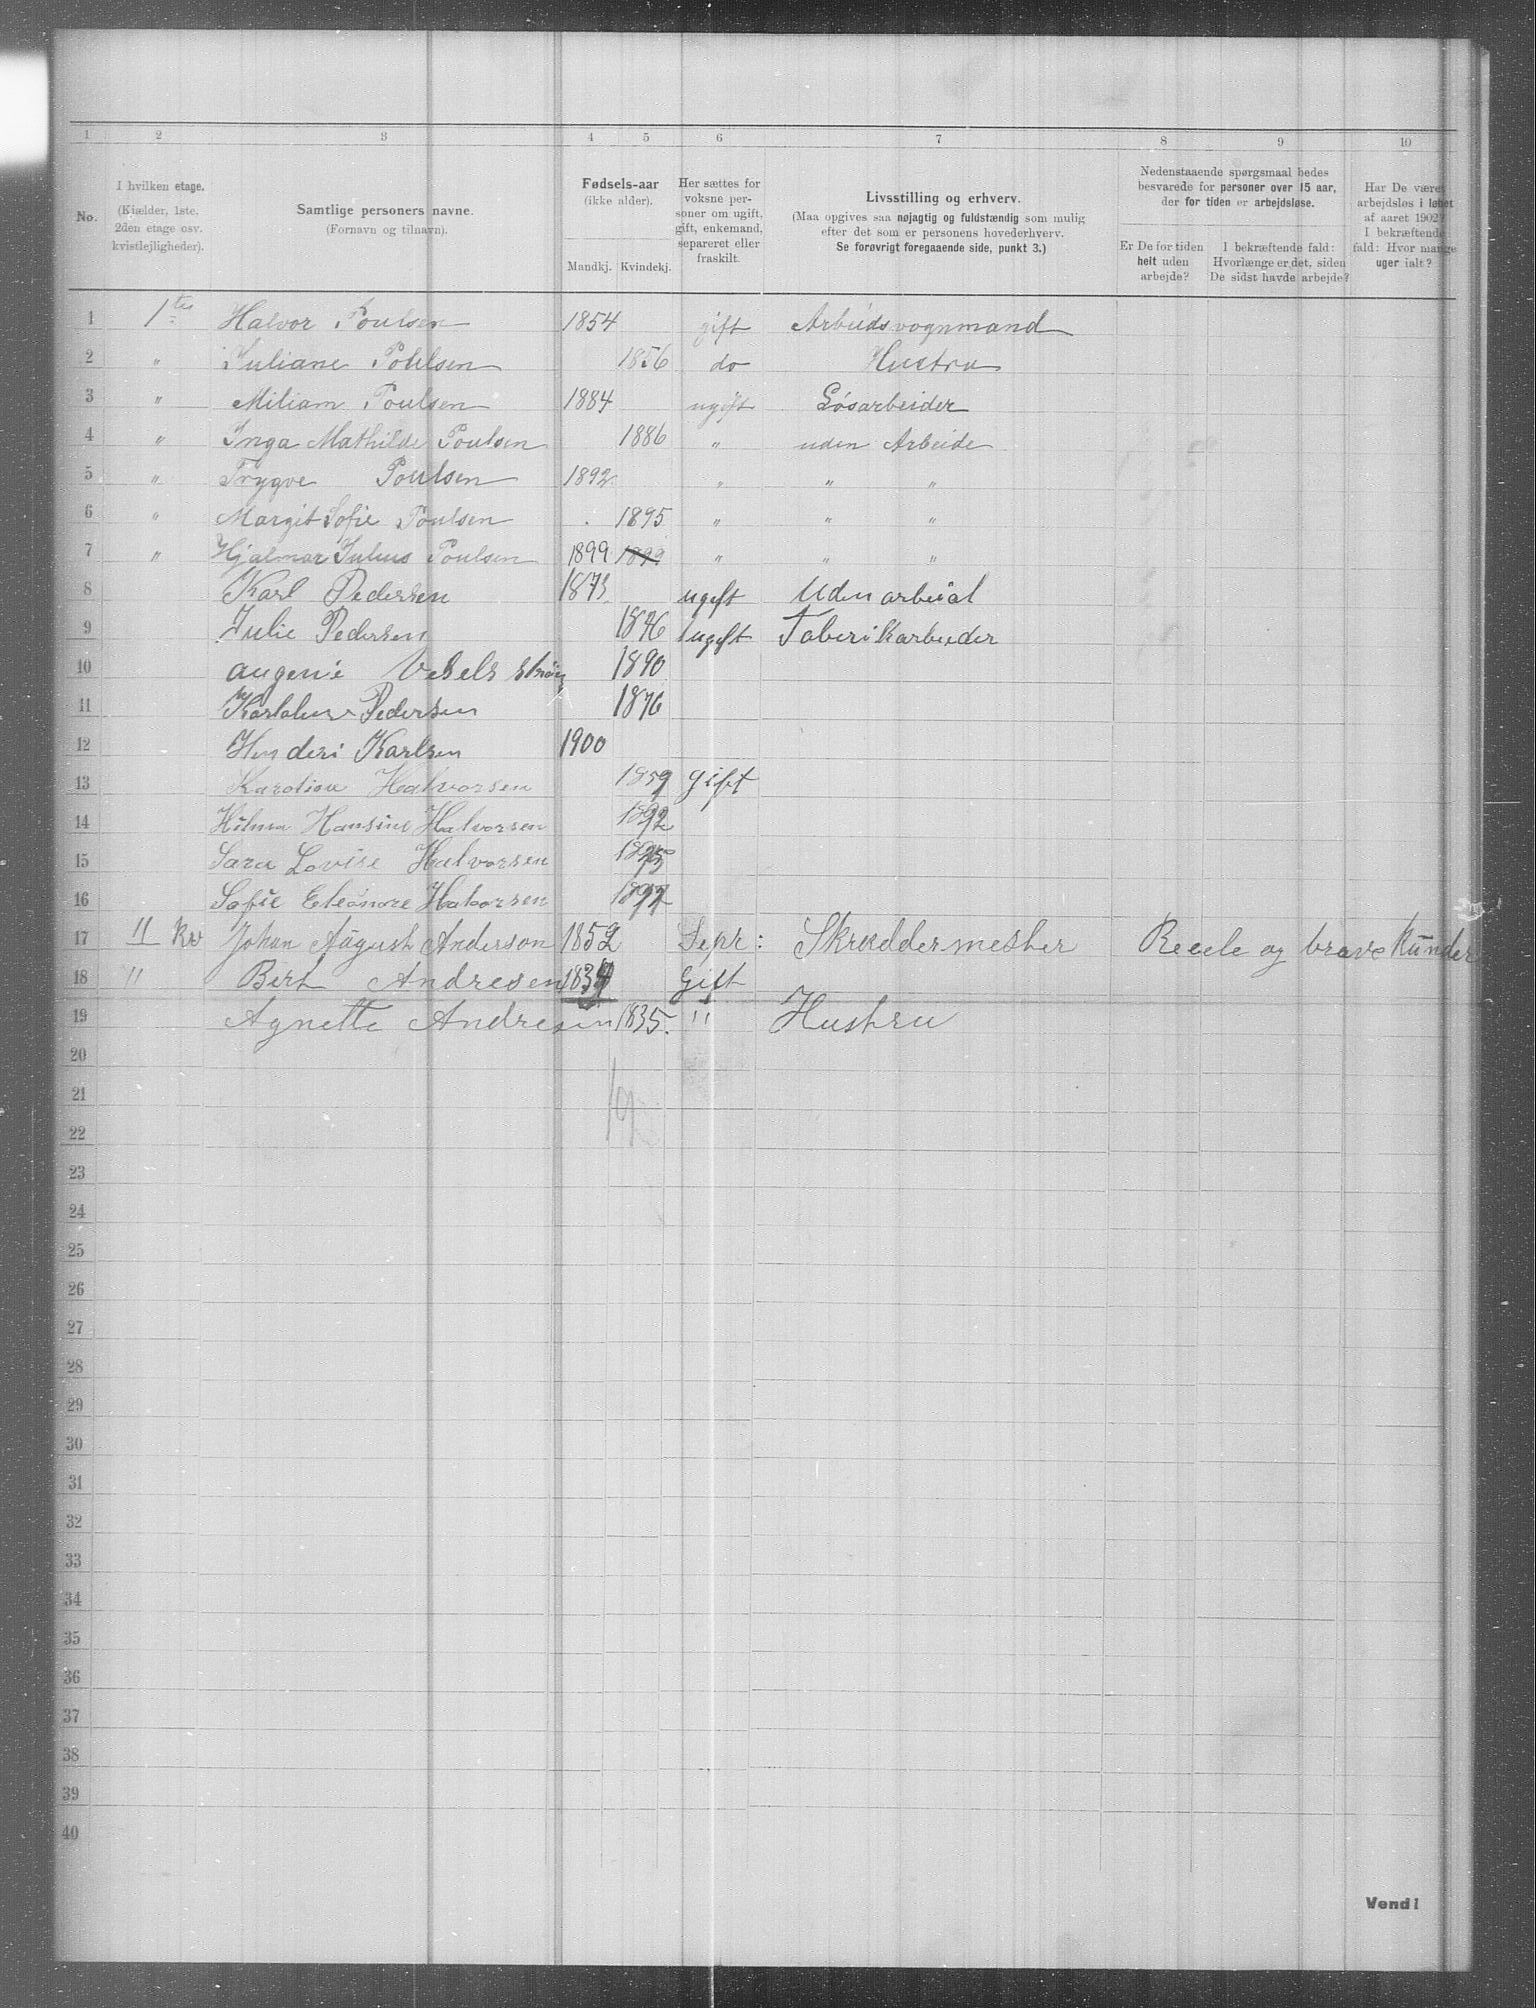 1 2 3 4 5 6 7 8 9 10
No.
I hvilken etage.
(Kjælder, 1ste,
2den etage osv.
kvistlejligheder).
Samtlige personers navne.
(Fornavn og tilnavn).
Fødsels-aar
(ikke alder).
Mandkj. Kvindekj.
Her sættes for
voksne per-
soner om ugift,
gift, enkemand,
separeret eller
fraskilt.
Livsstilling og erhverv.
(Maa opgives saa nøjagtig og fuldstændig som mulig
efter det som er personens hovederhverv.
Se forøvrigt foregaaende side, punkt 3.)
Nedenstaaende spørgsmaal bedes
besvarede for personer over 15 aar,
der for tiden er arbejdsløse.
Er De for tiden
helt uden
arbejde?
I bekræftende fald:
Hvorlænge er det, siden
De sidst havde arbejde?
Har De været
arbejdsløs i løbet
af aaret 1902?
I bekræftende
fald: Hvor mange
uger ialt?
1 1ste Halvor Poulsen 1854 gift Arbeidsvognmand
2 " Juliane Poulsen 1856 do Hustru
3 " Miliam Poulsen 1884 ugift Løsarbeider
4 " Inga Mathilde Poulsen 1886 " uden Arbeide
5 " Trygve Poulsen 1892 " " "
6 " Margit Sofie Poulsen 1895 " " "
7 " Hjalmar Julius Poulsen 1899 1899 " " "
8 Karl Pedersen 1873 ugift Uden arbeid
9 Julie Pedersen ugift Faberikarbeider
10 Augenie 1890
11 Pedersen 1876
12 Karlsen 1900
13 Karoline Halvorsen 1859 gift
14 Hilma Hansine Halvorsen 1892
15 Sara Lovise Halvorsen 1895
16 Sofie Eleonore Halvorsen 1897
17 II Kv Johan August Anderson 1852 Sepr: Skræddermester Reele og brave Kunder
18 " Bert Andresen Gift
19 Agnette Andresen 1835. " Hustru
20
21
22
23
24
25
26
27
28
29
30
31
32
33
34
35
36
37
38
39
40
Vend!